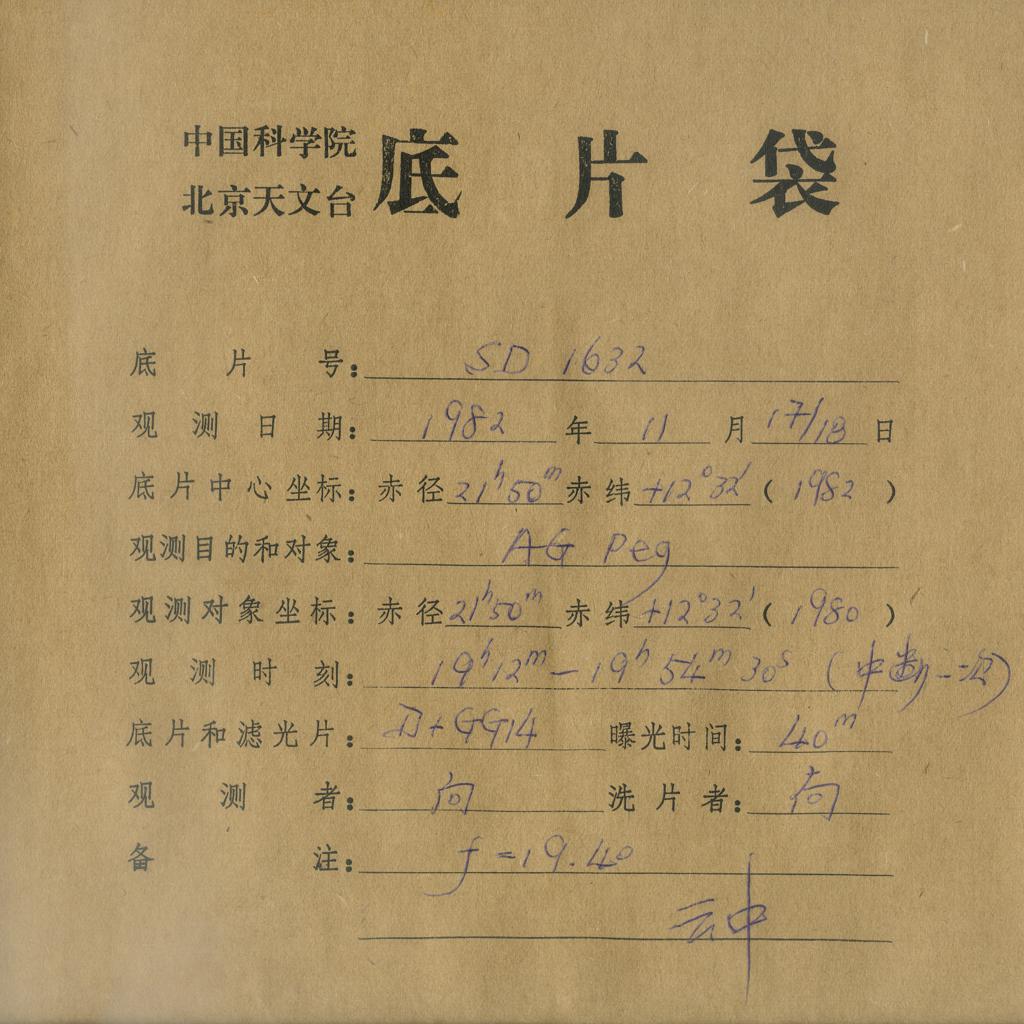 中国科学院
北京天文台
底片袋
底片号：SD 1632
观测日期：1982年11月17/18日
底片中心坐标：赤径21ʰ50ᵐ赤纬+12°32′（1982）
观测目的和对象：AG Peg
观测对象坐标：赤径21ʰ50ᵐ赤纬+12°32′（1980）
观测时刻：19ʰ12ᵐ－19ʰ54ᵐ30ˢ（中断一次）
底片和滤光片：D+GG14 曝光时间：40ᵐ
观测者：向 洗片者：向
备注：f=19.40
云中